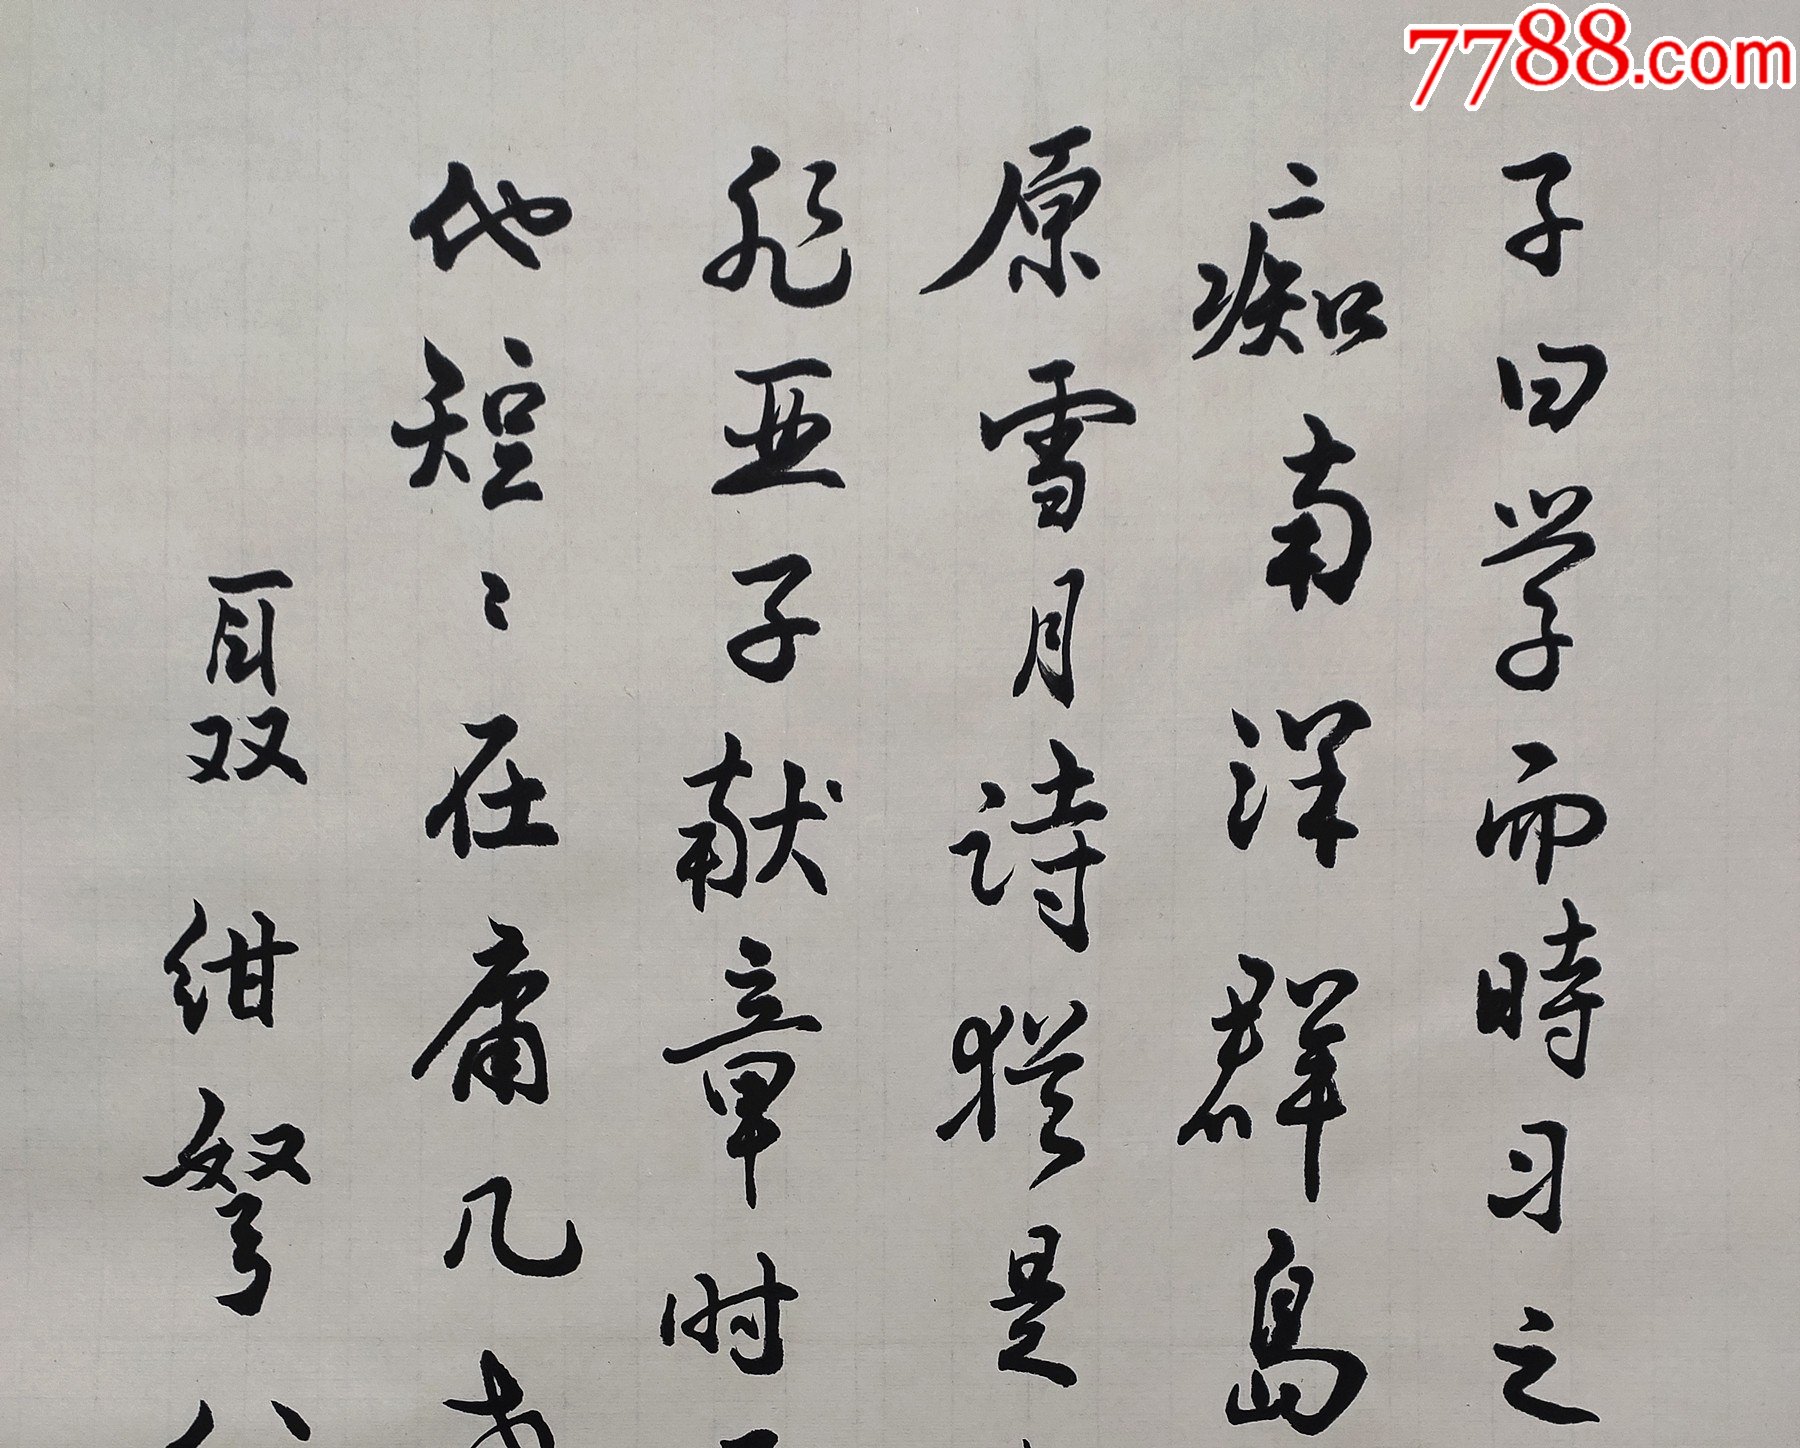 7788.com
子曰学而時习之
〻痴南洋群岛
原雪月诗犹是
非亚子献章时
他短〻在庸几
聂绀弩